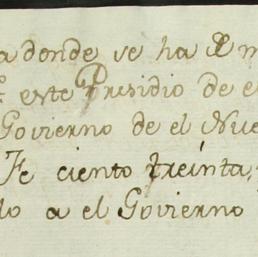 a donde se ha
este Presidio de e
Govierno de el Nue
Fe ciento treinta,
lo a el Govierno